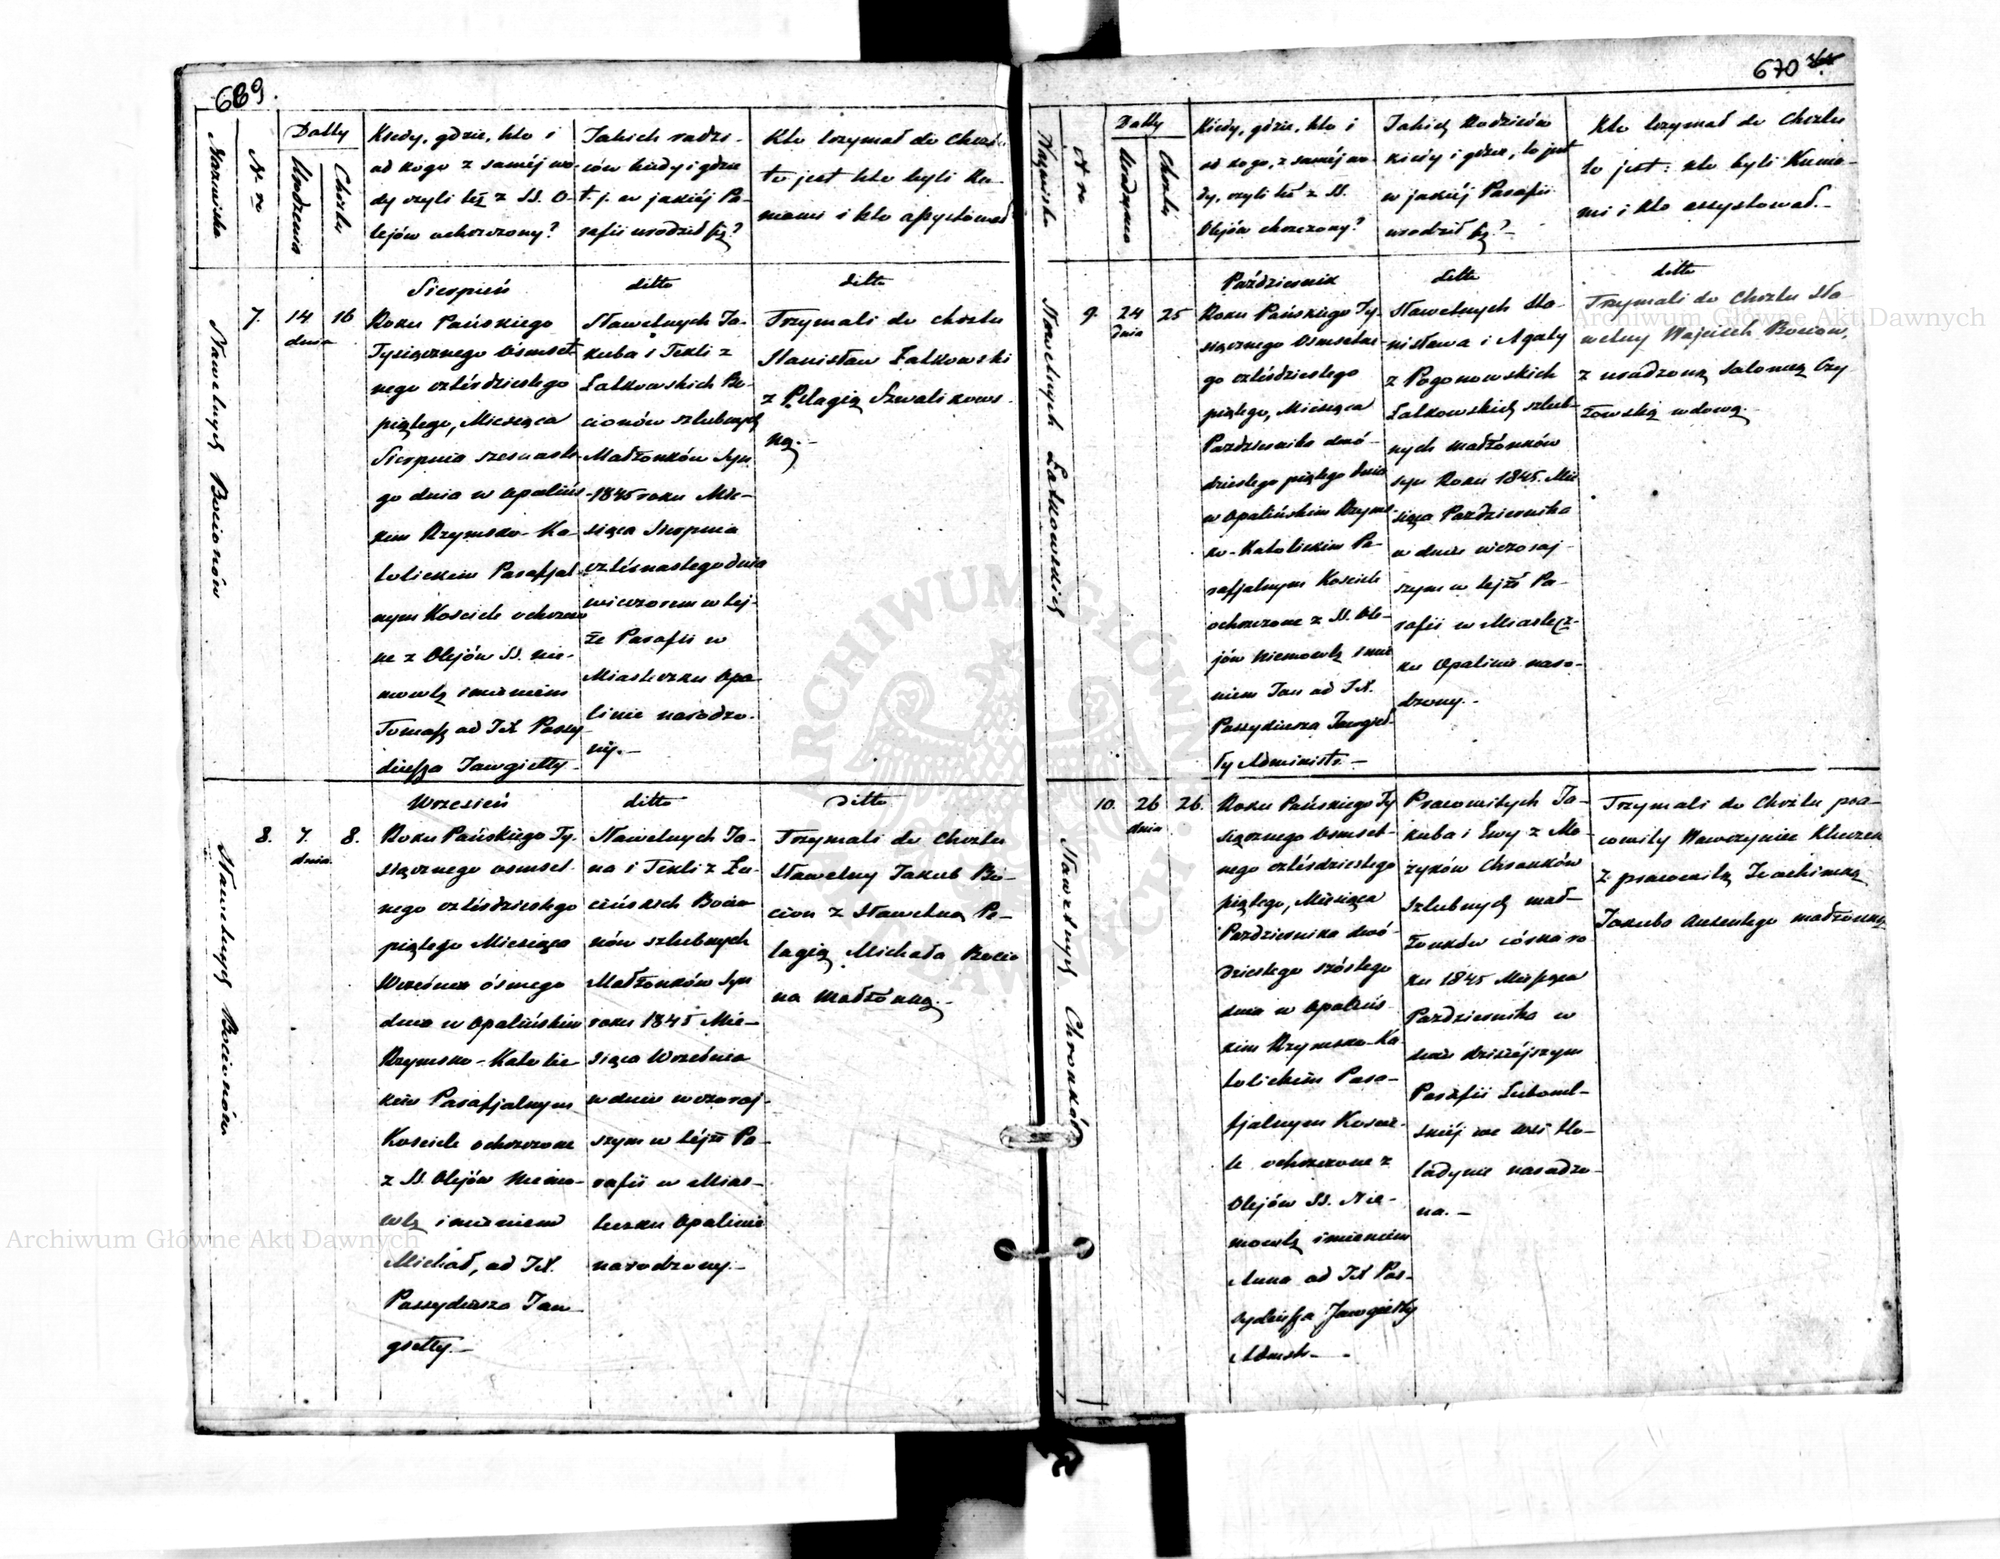 669.
Nazwisko
N-ro
Datty
Urodzenia
Chrztu
Kiedy, gdzie, kto i
od kogo z saméj wo-
dy czyli też z SS. O-
lejów ochrzczony?
Jakich rodzi-
ców kiedy i gdzie
t. j. w jakiéj Pa-
rafii urodził się?
Kto trzymał do Chrztu
to jest kto byli Ku-
mami i kto assystował
Sierpień
ditto
ditto
Sławetnych Bocionów
7.
14
dnia
16
Roku Pańskiego
Tysiącznego Osmset
nego czterdziestego
piątego, Miesiąca
Sierpnia szesnaste-
go dnia w Opalińs-
kim Rzymsko-Ka-
tolickim Parafjal-
nym Kosciele ochrzczo
ne z Olejów SS. nie-
mowlę imieniem
Tomasz od JX Passy-
diusza Jawgiełły
Sławetnych Ja-
kuba i Tekli z
Łatkowskich Bo-
cionów szlubnych
Małżonków Syn
1845 roku Mie-
siąca Sierpnia
czternastego dnia
wieczorem w tej-
że Parafii w
Miasteczku Opa
linie narodzo-
ny.
Trzymali do chrztu
Stanisław Łatkowski
z Pelagią Szwalikows-
ką.
Wrzesień
ditto
ditto
Sławetnych Bocionów
8.
7.
dnia
8.
Roku Pańskiego Ty-
siącznego osmset
nego czterdziestego
piątego Miesiąca
Września ósmego
dnia w Opalińskim
Rzymsko-Katolic
kim Parafjalnym
Kosciele ochrzczone
z SS. Olejów Niemo-
wlę imieniem
Michał, od JX.
Passydiusza Jaw
giełły
Sławetnych Ja-
na i Tekli z Łu-
cińskich Bocio
nów szlubnych
Małżonków Syn
roku 1845 Mie-
siąca Września
w dniu wczoraj-
szym w téjże Pa-
rafii w Mias-
teczku Opalinie
narodzony.
Trzymali do Chrztu
Sławetny Jakub Bo-
cion z Sławetną Pe-
lagią Michała Bocio
na Małżonką.
670
Nazwisko
N-ro
Datty
Urodzenia
Chrztu
Kiedy, gdzie, kto i
od kogo, z saméj wo-
dy, czyli też z SS.
Olejów chrzczony?
Jakich Rodziców
kiedy i gdzie, to jest
w jakiéj Parafii
urodził się?
Kto trzymał do Chrztu
to jest: kto byli Kuma-
mi i kto assystował.
Październik
ditto
ditto
Sławetnych Łatkowskich
9.
24
dnia
25
Roku Pańskiego Ty-
siącznego Osmsetne-
go czterdziestego
piątego, Miesiąca
Pazdziernika dwó-
dziestego piątego dnia
w Opalińskim Rzyms
ko-Katolickim Pa-
rafjalnym Kosciele
ochrzczone z SS. Ole-
jów Niemowlę imie
niem Jan od JX.
Passydiusza Jawgieł-
ły Administr.
Sławetnych Sta-
nisława i Agaty
z Pogonowskich
Łatkowskich szlub-
nych Małżonków
syn Roku 1845. Mie
siąca Pazdziernika
w dniu wczoraj-
szym w tejże Pa-
rafii w Miastecz-
ku Opalinie naro-
dzony.
Trzymali do Chrztu Sła-
wetny Wojciech Bocion,
z urodzoną Salomeą Czy
żowską wdową.
Sławetnych Chronków
10.
26
dnia
26.
Roku Pańskiego Ty
siącznego Osmset-
nego czterdziestego
piątego, Miesiąca
Pazdziernika dwó-
dziestego szóstego
dnia w Opalińs
kim Rzymsko-Ka
tolickim Para-
fjalnym Koscie-
le ochrzczone z
Olejów SS. Nie-
mowlę imieniem
Anna od JX Pas-
sydiusza Jawgiełły
Admstr.
Pracowitych Ja-
kuba i Ewy z Mo-
zyków Chronków
szlubnych mał-
żonków córka ro
ku 1845 Miesiąca
Pazdziernika w
dniu dzisiéjszym
Parafii Luboml-
skiéj we wsi Ho-
ladynie narodzo-
na.
Trzymali do Chrztu pra-
cowity Wawrzyniec
z pracowitą Joachimką
Jakuba małżonką
ARCHIWUM GŁÓWNE AKT DAWNYCH
Archiwum Główne Akt Dawnych
Archiwum Główne Akt Dawnych